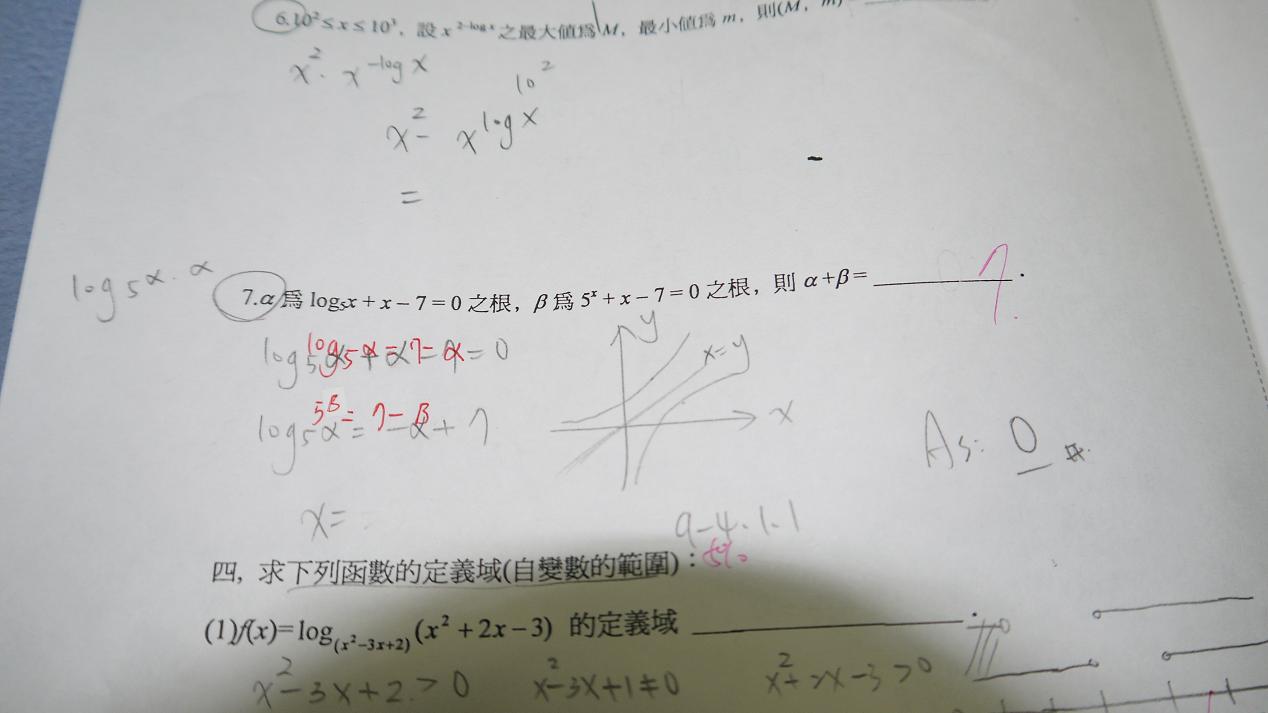 6.10²≤x≤10³，設 x^{2-log x} 之最大值為 M，最小值為 m，則(M，m)
x²·x^{-log x} 10²
x²- x^{log x}
=
log 5^α·α
7.α 為 log₅x+x-7=0 之根，β 為 5ˣ+x-7=0 之根，則 α+β= 7.
log₅α=7-α=0
5^β=7-β
log₅α=-α+7
y
x=y
x
As: 0 #.
x=
9-4·1·1
四，求下列函數的定義域(自變數的範圍)：
(1)f(x)=log_{(x²-3x+2)}(x²+2x-3) 的定義域
x²-3x+2>0 x²-3x+1≠0 x²+2x-3>0